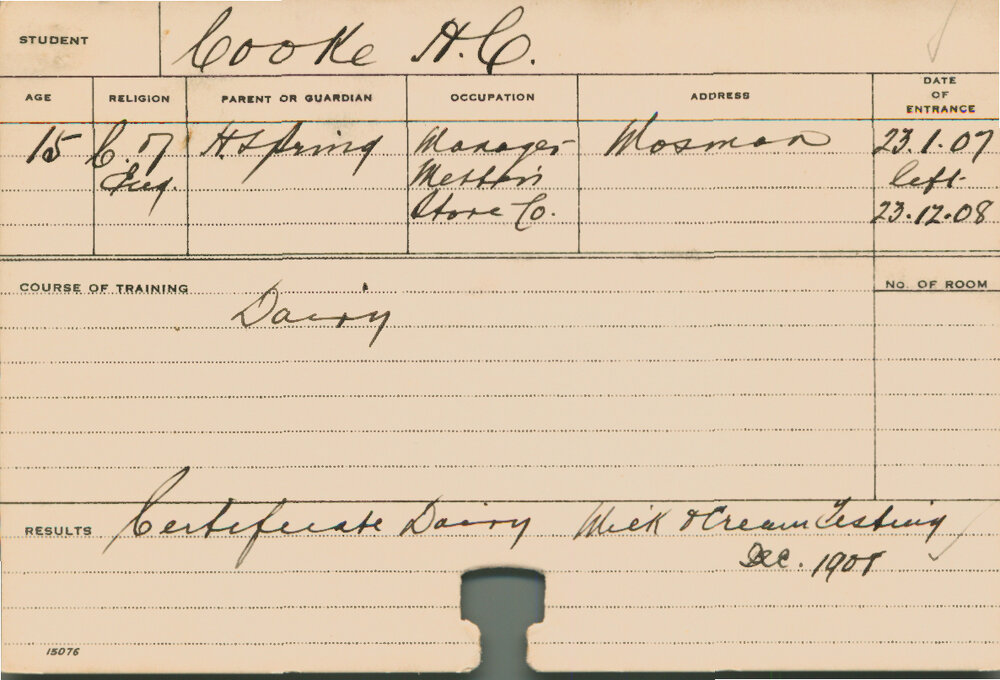 STUDENT Cooke H.C.
AGE RELIGION PARENT OR GUARDIAN OCCUPATION ADDRESS DATE OF ENTRANCE
15 C. of H. Spring Manager Mosman 23.1.07
Eng. left
Store Co. 23.12.08
COURSE OF TRAINING No. OF ROOM
Dairy
RESULTS Certificate Dairy Milk & Cream Testing
Dec. 1908
15076